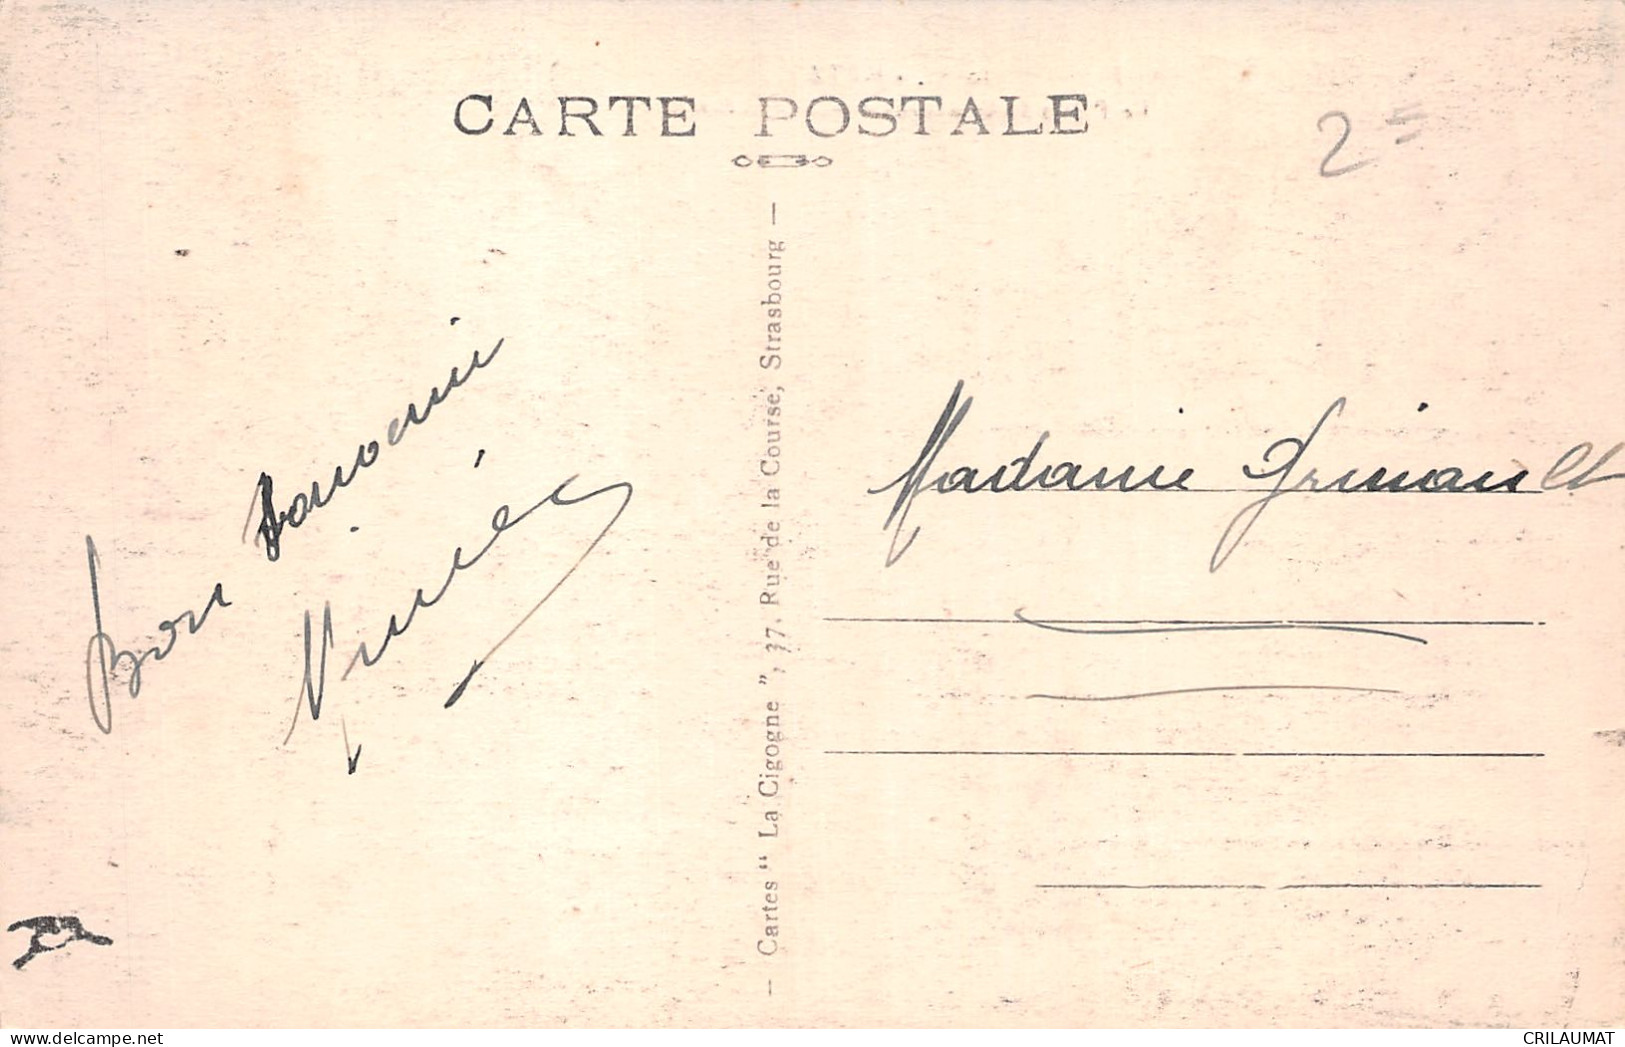 CARTE POSTALE
2=
Bon Souvenir
— Cartes “ La Cigogne ”, 37, Rue de la Course, Strasbourg —
Madame Grinault
www.delcampe.net
CRILAUMAT